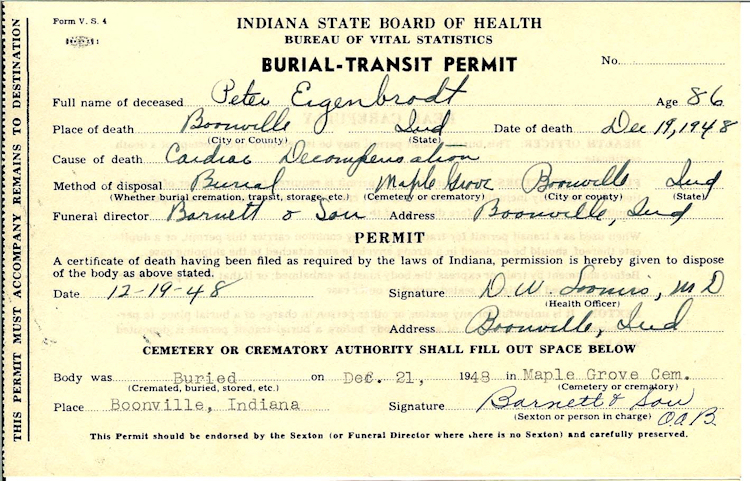 Form V. S. 4
INDIANA STATE BOARD OF HEALTH
BUREAU OF VITAL STATISTICS
BURIAL-TRANSIT PERMIT
No.
Full name of deceased Peter Eigenbrodt Age 86
Place of death Boonville Ind Date of death Dec 19, 1948
(City or County) (State)
Cause of death Cardiac Decompensation
Method of disposal Burial Maple Grove Boonville Ind
(Whether burial, cremation, transit, storage, etc.) (Cemetery or crematory) (City or county) (State)
Funeral director Barnett & Son Address Boonville, Ind
PERMIT
A certificate of death having been filed as required by the laws of Indiana, permission is hereby given to dispose
of the body as above stated.
Date 12-19-48 Signature D. W. Loomis, MD
(Health Officer)
Address Boonville, Ind
CEMETERY OR CREMATORY AUTHORITY SHALL FILL OUT SPACE BELOW
Body was Buried on Dec. 21, 1948 in Maple Grove Cem.
(Cremated, buried, stored, etc.) (Cemetery or crematory)
Place Boonville, Indiana Signature Barnett & Son
(Sexton or person in charge) O.A.B.
This Permit should be endorsed by the Sexton (or Funeral Director where there is no Sexton) and carefully preserved.
THIS PERMIT MUST ACCOMPANY REMAINS TO DESTINATION